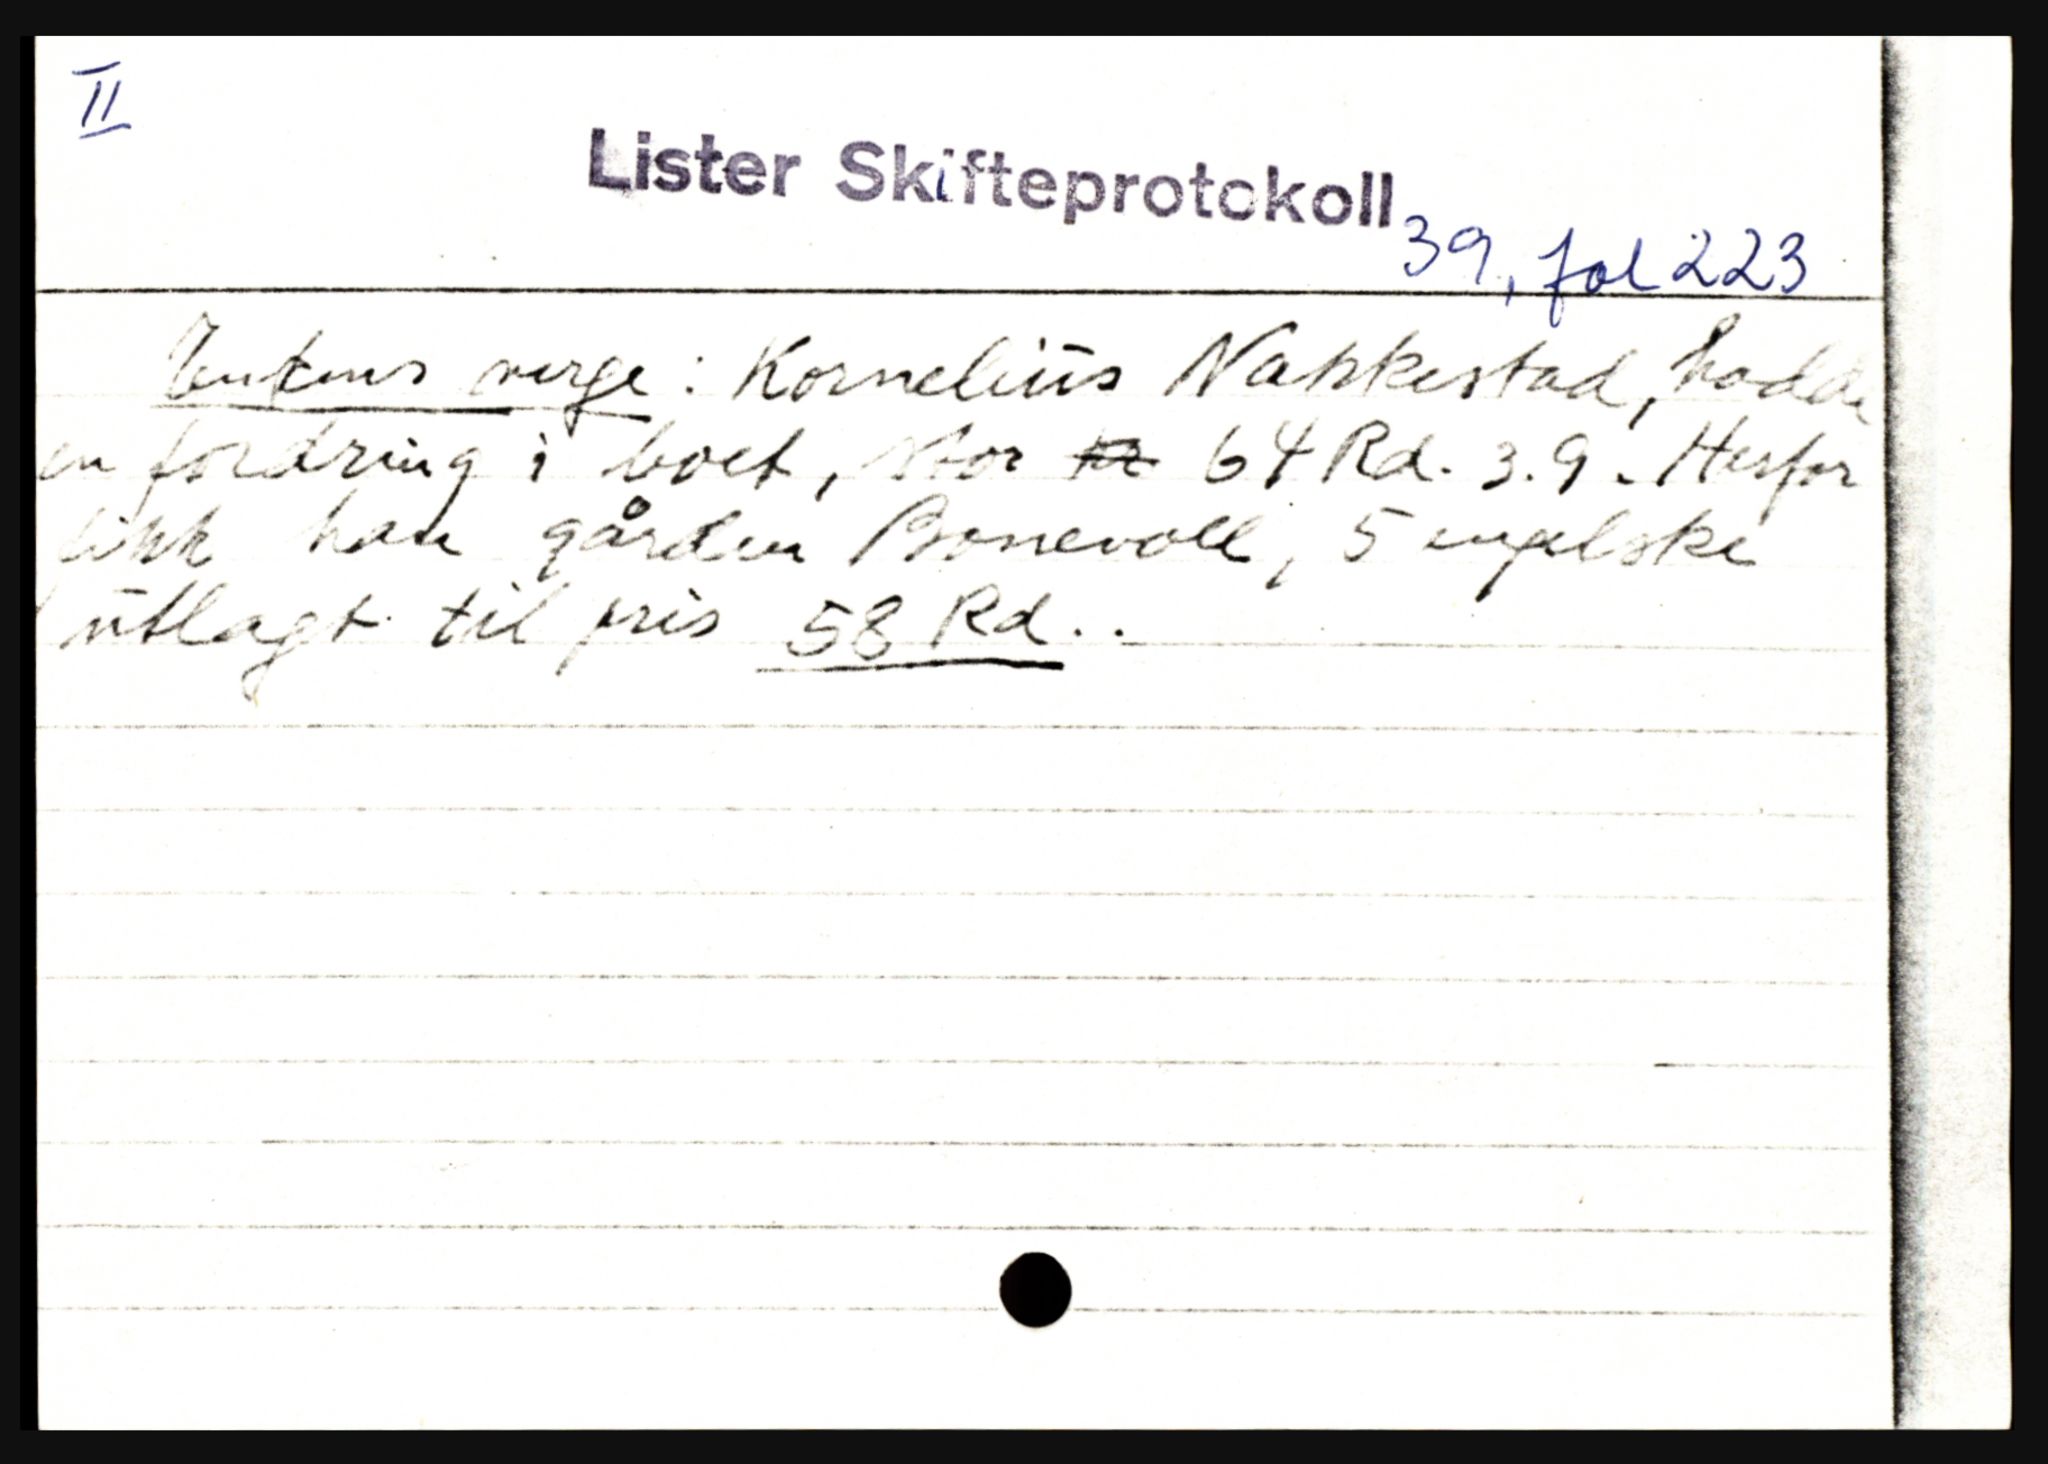 II
Lister Skifteprotokoll
39, fol 223
Enkens verge: Kornelius Nakkestad, hadde
en fordring i boet, stor 64 Rd. 3.9. Herfor
fikk han gården Bonevoll, 5 engelske
utlagt til pris 58 Rd..